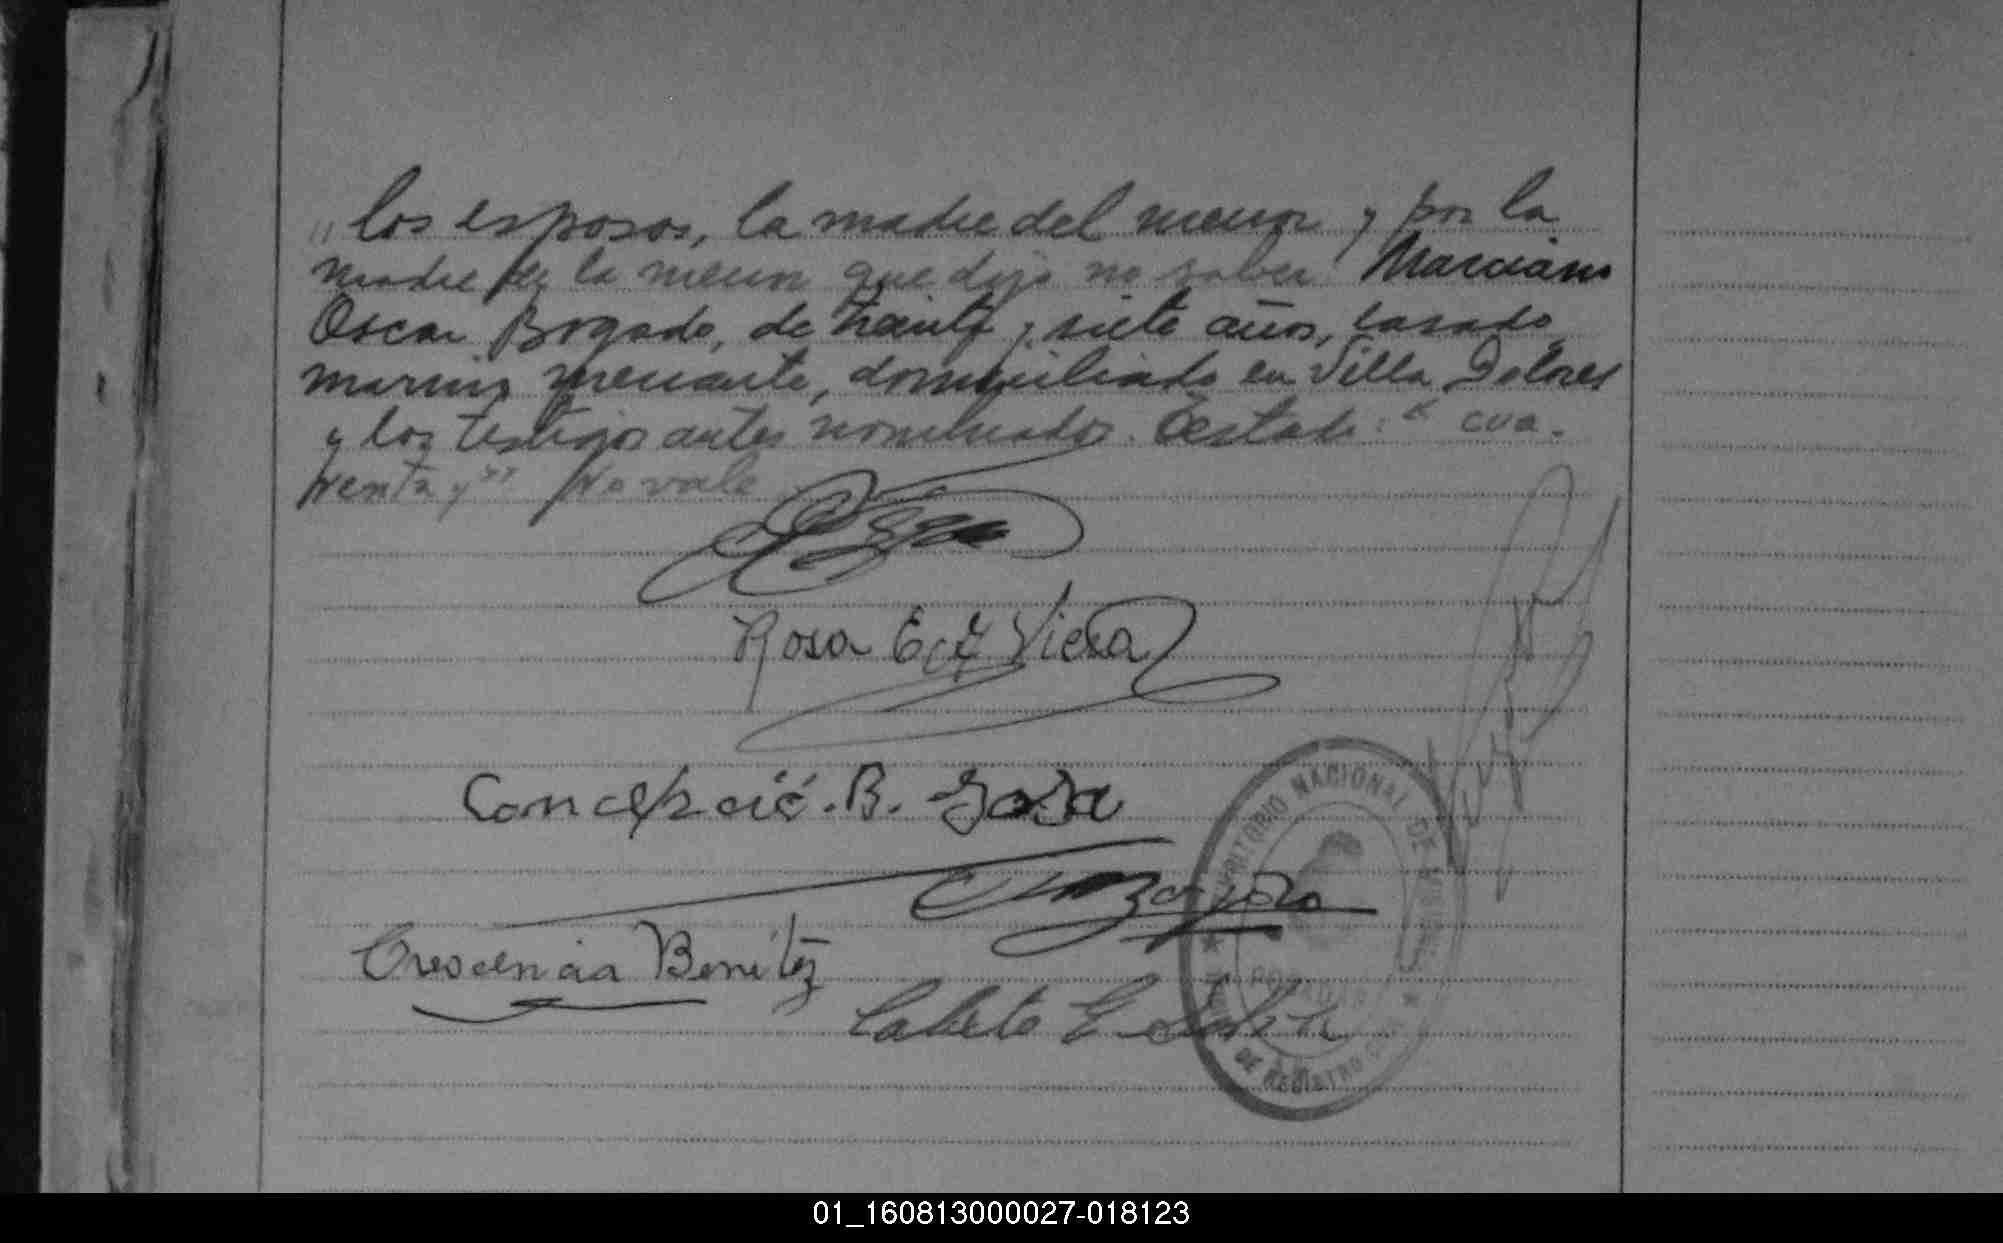 " los esposos, la madre del menor y por la
madre de la menor que dijo no saber Marciano
Oscar Bogado, de treinta y siete años, casado,
marino mercante, domiciliado en Villa Dolores
y los testigos antes nombrados. Testado: " cua-
renta y" No vale
Rosa E. Viera
Concepción B. Sosa
Crescencia Benitez
TERRITORIO NACIONAL DE MISIONES
POSADAS
DE REGISTRO
01_160813000027-018123